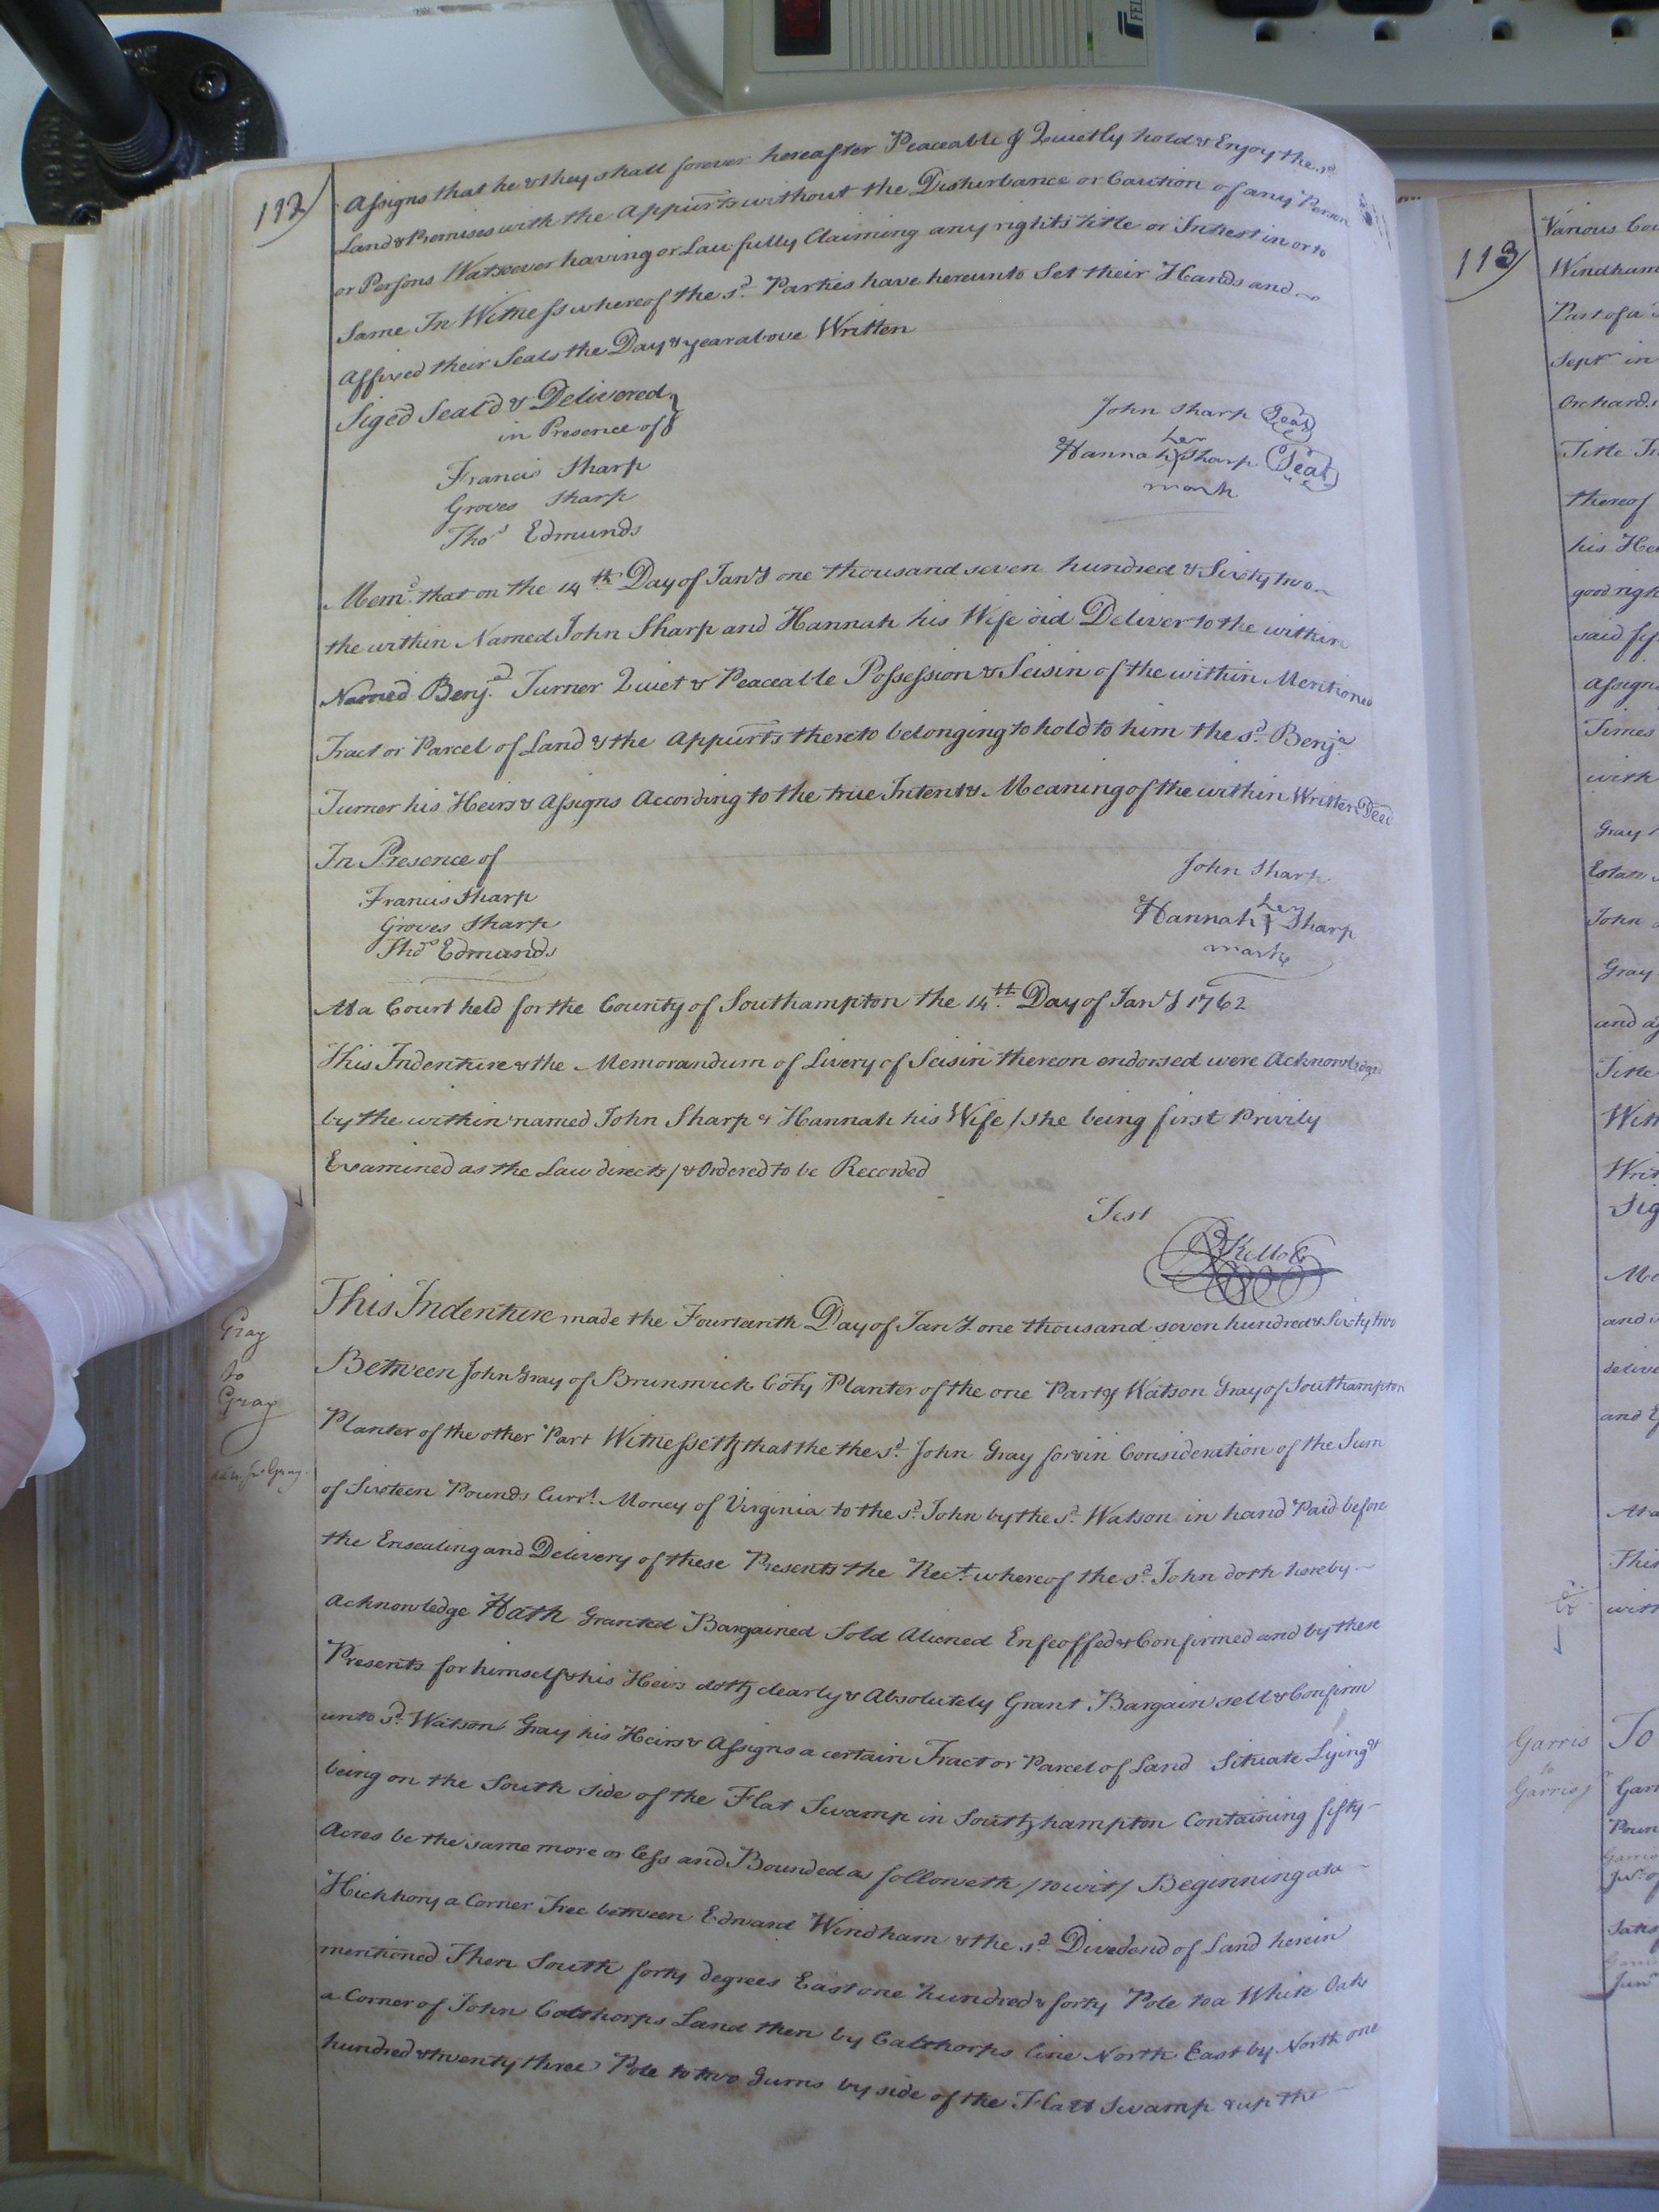 112)
Assigns that he & they shall forever hereafter Peaceable & Quietly hold & Enjoy the sd
Land & Premises with the Appurts without the Disturbance or Caution of any Person
or Persons Watsoever having or Lawfully Claiming any rights title or Intrest in or to
Same In Witness whereof the sd Parties have hereunto Set their Hands and
Affixed their Seals the Day & year above Written
Siged Seal'd & Delivered
in Presence of
John Sharp Seal
her
Hannah Sharp Seal
mark
Francis Sharp
Groves Sharp
Thos Edmunds
Memo. that on the 14th Day of Jany one thousand seven hundred & Sixty two
the within Named John Sharp and Hannah his Wife did Deliver to the within
Named Benja Turner Quiet & Peaceable Possession & Seisin of the within Mentioned
Tract or Parcel of Land & the Appurts thereto belonging to hold to him the sd Benja
Turner his Heirs & Assigns According to the true Intent & Meaning of the within Written Deed
In Presence of
Francis Sharp
Groves Sharp
Thos Edmunds
John Sharp
her
Hannah Sharp
mark
At a Court held for the County of Southampton the 14th Day of Jany 1762
This Indenture & the Memorandum of Livery of Seisin thereon endorsed were Acknowledged
by the within named John Sharp & Hannah his Wife / She being first Privily
Examined as the Law directs / & Ordered to be Recorded
Test
RKello C
Gray
to
Gray
This Indenture made the Fourteenth Day of Jany one thousand seven hundred & Sixty two
Between John Gray of Brunswick Coty Planter of the one Part & Watson Gray of Southampton
Planter of the other Part Witnesseth that the the sd John Gray for & in Consideration of the Sum
of Sixteen Pounds Currt Money of Virginia to the sd John by the sd Watson in hand Paid before
the Ensealing and Delivery of these Presents the Rect whereof the sd John doth hereby
Acknowledge Hath Granted Bargained Sold Aliened Enfeoffed & Confirmed and by these
Presents for himself & his Heirs doth clearly & Absolutely Grant Bargain sell & Confirm
unto sd Watson Gray his Heirs & Assigns a certain Tract or Parcel of Land Situate Lying &
being on the South Side of the Flat Swamp in Southhampton Containing fifty
Acres be the same more or less and Bounded as followeth / to wit / Beginning at a
Hickhory a Corner Tree between Edward Windham & the sd Dividend of Land herein
mentioned Then South forty degrees East one hundred & forty Pole to a White Oak
a Corner of John Calthorps Land then by Calthorps line North East by North one
hundred & twenty three Pole to two Gums by side of the Flatt Swamp & up the
113)
Windham
Part of a
Sept in
Orchards
Title In
thereof
his Hei
good righ
said
Assigns
Times
with
Gray
Estate
John
Gray
and
Title
Writ
Sig
and
delive
and
At a
This
with
Garris
to
Garris
To